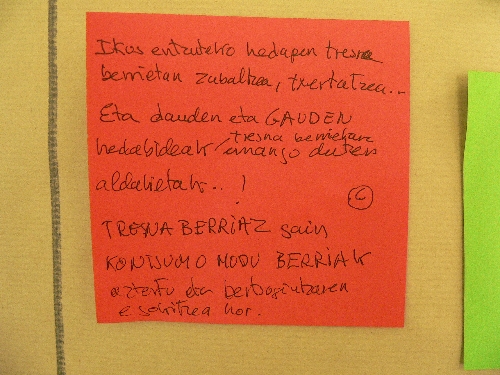 Ikus entzuteko hedapen tresna
berrietan zabaltzea, txertatzea...
Eta dauden eta GAUDEN
tresna berrietara
hedabideak emango duten
aldaketak.. !
6
TRESNA BERRIAZ gain
KONTSUMO MODU BERRIAK
aztertu eta
hor.